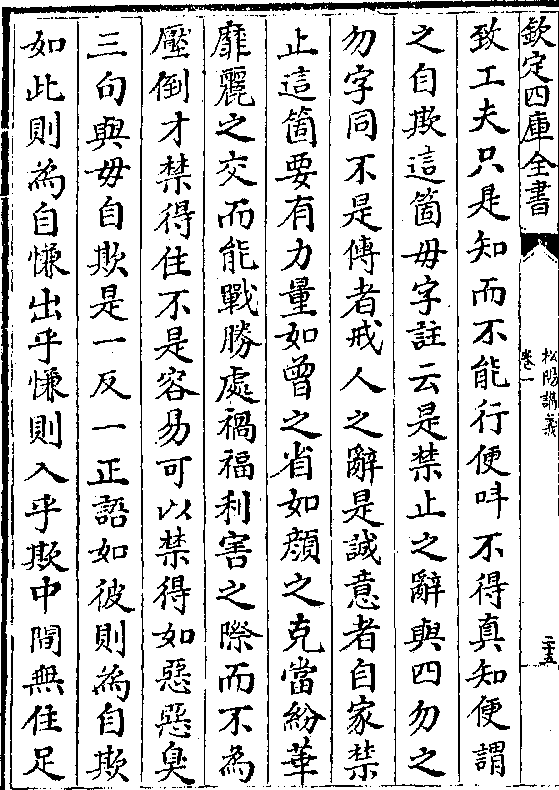 欽定四庫全書
松陽講義
卷一
二十五
致工夫只是知而不能行便呌不得真知便謂
之自欺這箇毋字註云是禁止之辭與四勿之
勿字同不是傳者戒人之辭是誠意者自家禁
止這箇要有力量如曾之省如顔之克當紛華
靡麗之交而能戰勝處禍福利害之際而不為
壓倒才禁得住不是容易可以禁得如惡惡臭
三句與毋自欺是一反一正語如彼則為自欺
如此則為自慊出乎慊則入乎欺中間無住足